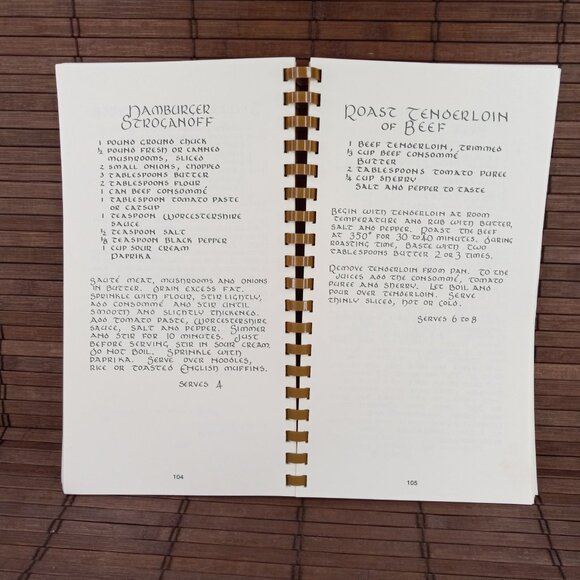 Hamburger
Stroganoff
1 pound ground chuck
½ pound fresh or canned
mushrooms, sliced
2 small onions, chopped
3 tablespoons butter
2 tablespoons flour
1 can beef consommé
1 tablespoon tomato paste
or catsup
1 teaspoon Worcestershire
sauce
½ teaspoon salt
⅛ teaspoon black pepper
1 cup sour cream
Paprika
Sauté meat, mushrooms and onions
in butter. Drain excess fat.
Sprinkle with flour, stir lightly,
add consommé and stir until
smooth and slightly thickened.
Add tomato paste, Worcestershire
sauce, salt and pepper. Simmer
and stir for 10 minutes. Just
before serving stir in sour cream.
Do not boil. Sprinkle with
paprika. Serve over noodles,
rice or toasted English muffins.
Serves 4
104
Roast Tenderloin
of Beef
1 Beef tenderloin, trimmed
⅓ cup beef consommé
Butter
2 tablespoons tomato puree
¼ cup sherry
Salt and pepper to taste
Begin with tenderloin at room
temperature and rub with butter,
salt and pepper. Roast the beef
at 350° for 30 to 40 minutes. During
roasting time, baste with two
tablespoons butter 2 or 3 times.
Remove tenderloin from pan. To the
juices add the consommé, tomato
puree and sherry. Let boil and
pour over tenderloin. Serve
thinly sliced, hot or cold.
Serves 6 to 8
105